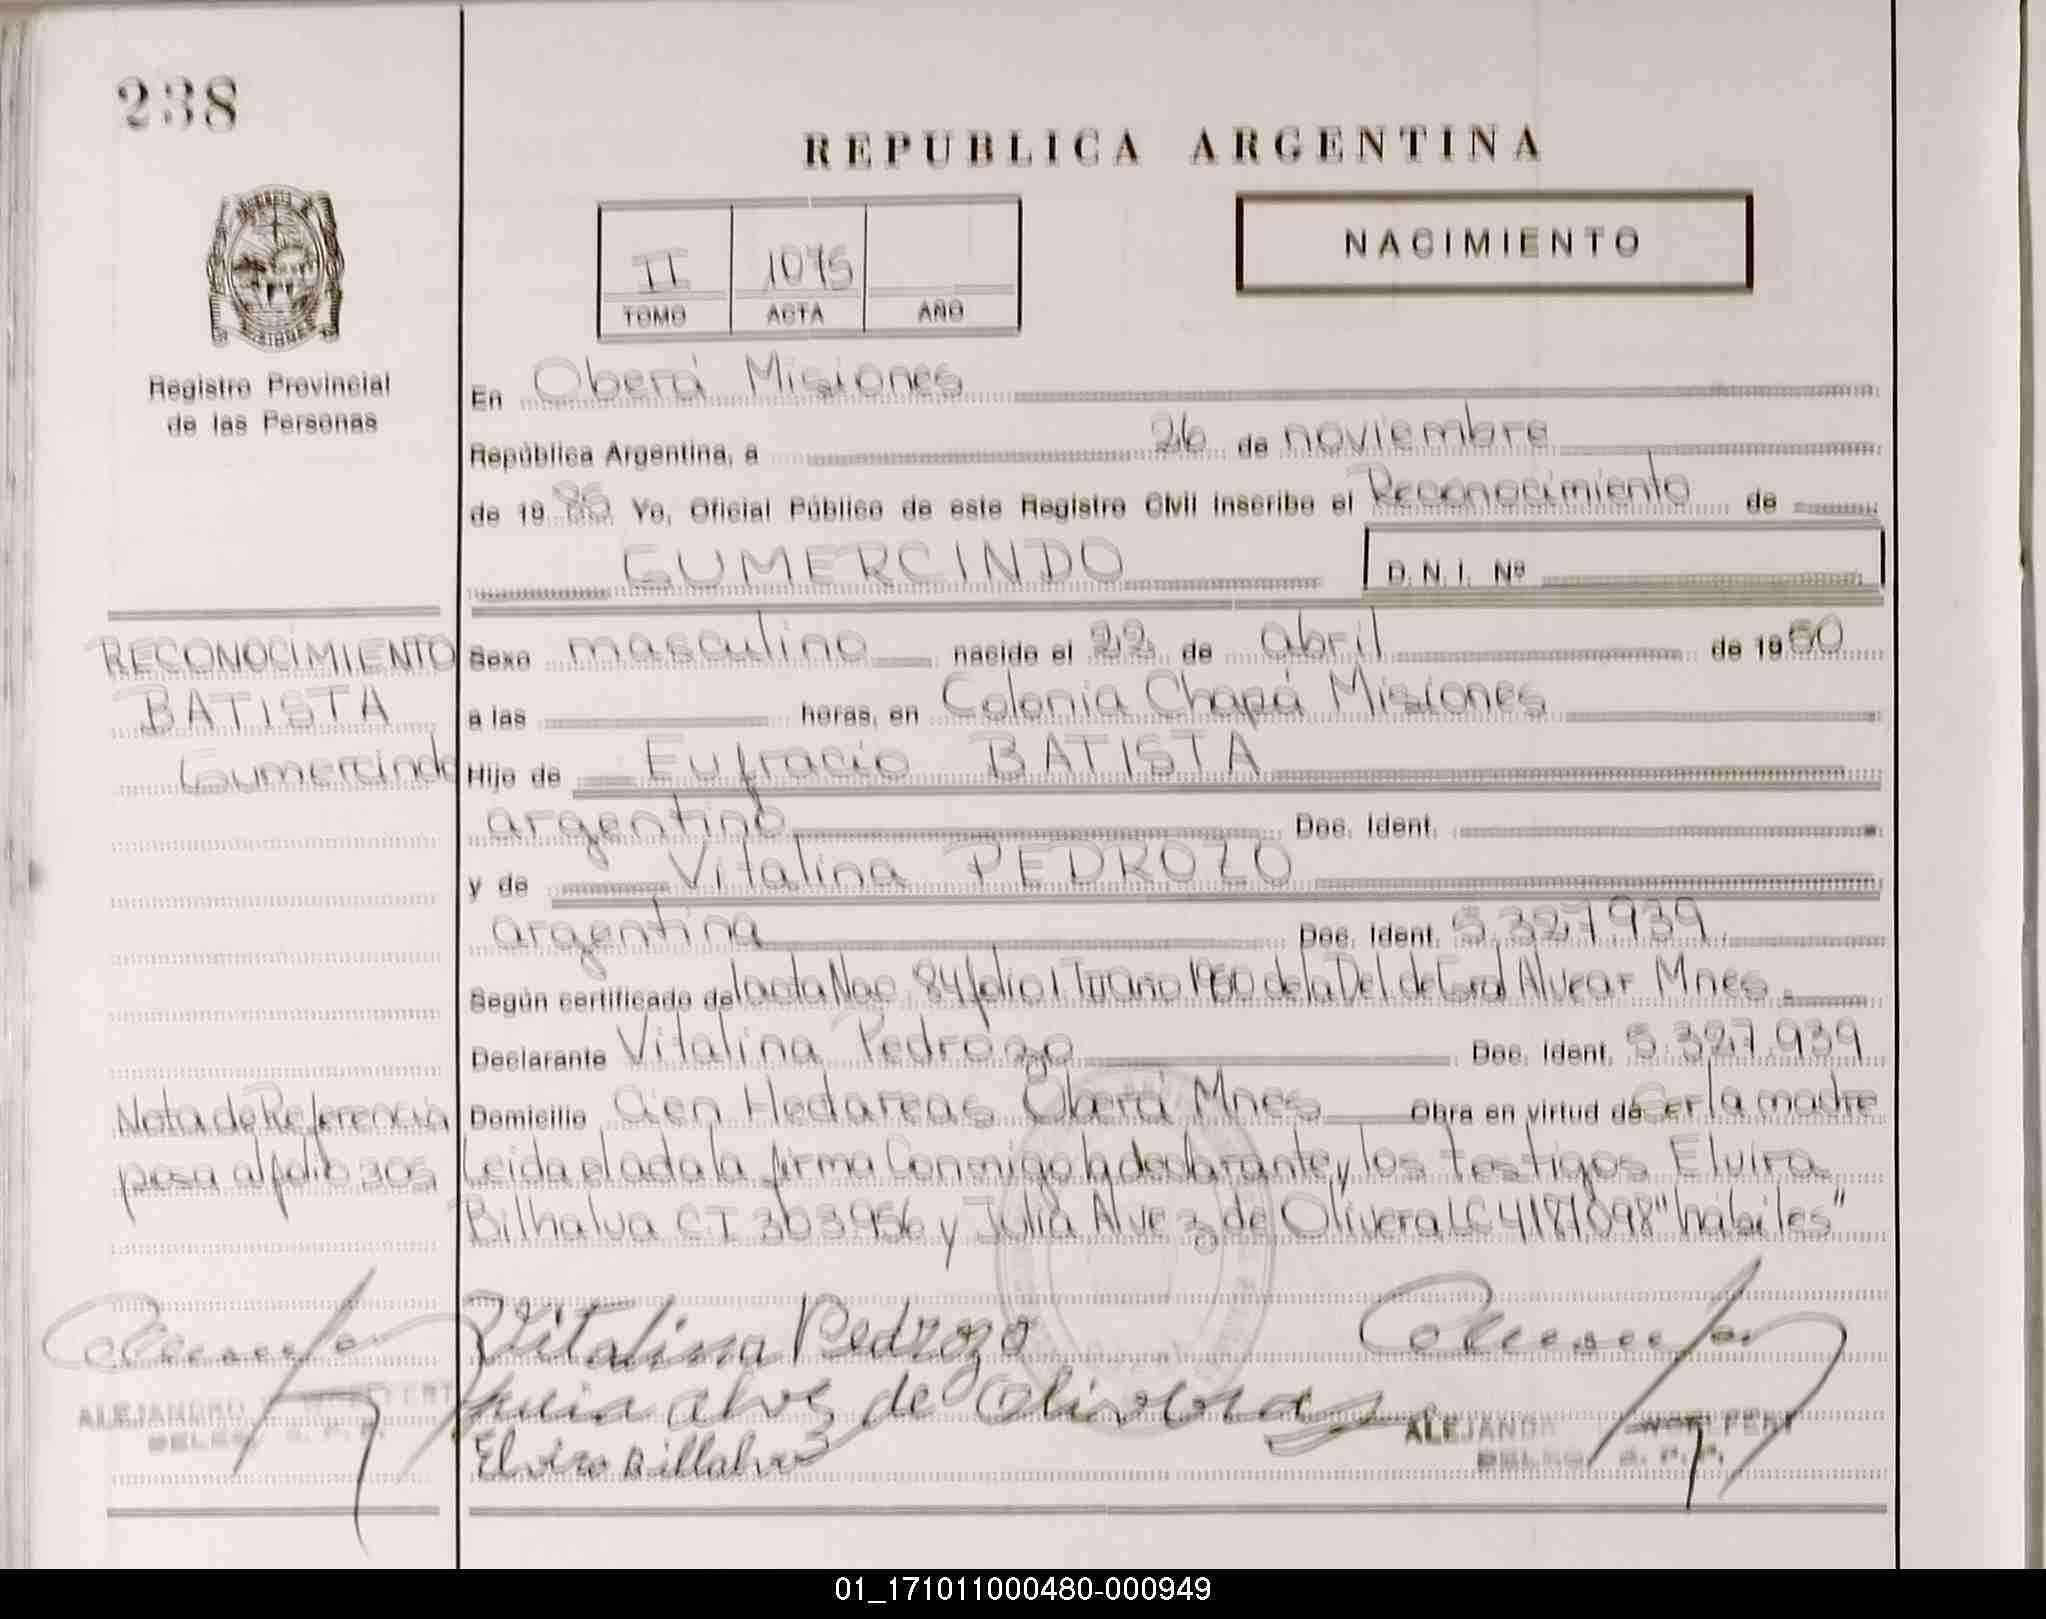 238
REPUBLICA ARGENTINA
NACIMIENTO
II 1075
TOMO ACTA AÑO
Registro Provincial
de las Personas
En Oberá Misiones
República Argentina, a 26 de noviembre
de 19 86 Yo, Oficial Público de este Registro Civil inscribo el Reconocimiento de
GUMERCINDO D. N. I. Nº
RECONOCIMIENTO
BATISTA
Gumercindo
Sexo masculino nacido el 22 de abril de 19 60
a las horas, en Colonia Chapá Misiones
Hijo de Eufracio BATISTA
argentino Doc. Ident.
y de Vitalina PEDROZO
argentina Doc. Ident. 5.327.939
Según certificado de l acta Nac 84 folio 1 T II año 1960 de la Del. de Gral Alvear Mnes.
Declarante Vitalina Pedrozo Doc. Ident. 5.327.939
Domicilio Cien Hectareas Oberá Mnes Obra en virtud de Ser la madre
Nota de Referencia
pasa al folio 305
Leida el acta la firma Conmigo la declarante y los testigos Elvira
Bilhalva CI 303956 y Julia Alvez de Olivera LC 4187.098 "hábiles"
Vitalina Pedrozo
Alves de Oliveras
Elvira Billalva
ALEJANDRO
DELEG. S. P. P.
ALEJANDR WOELFERT
DELEG. S. P. P.
01_171011000480-000949